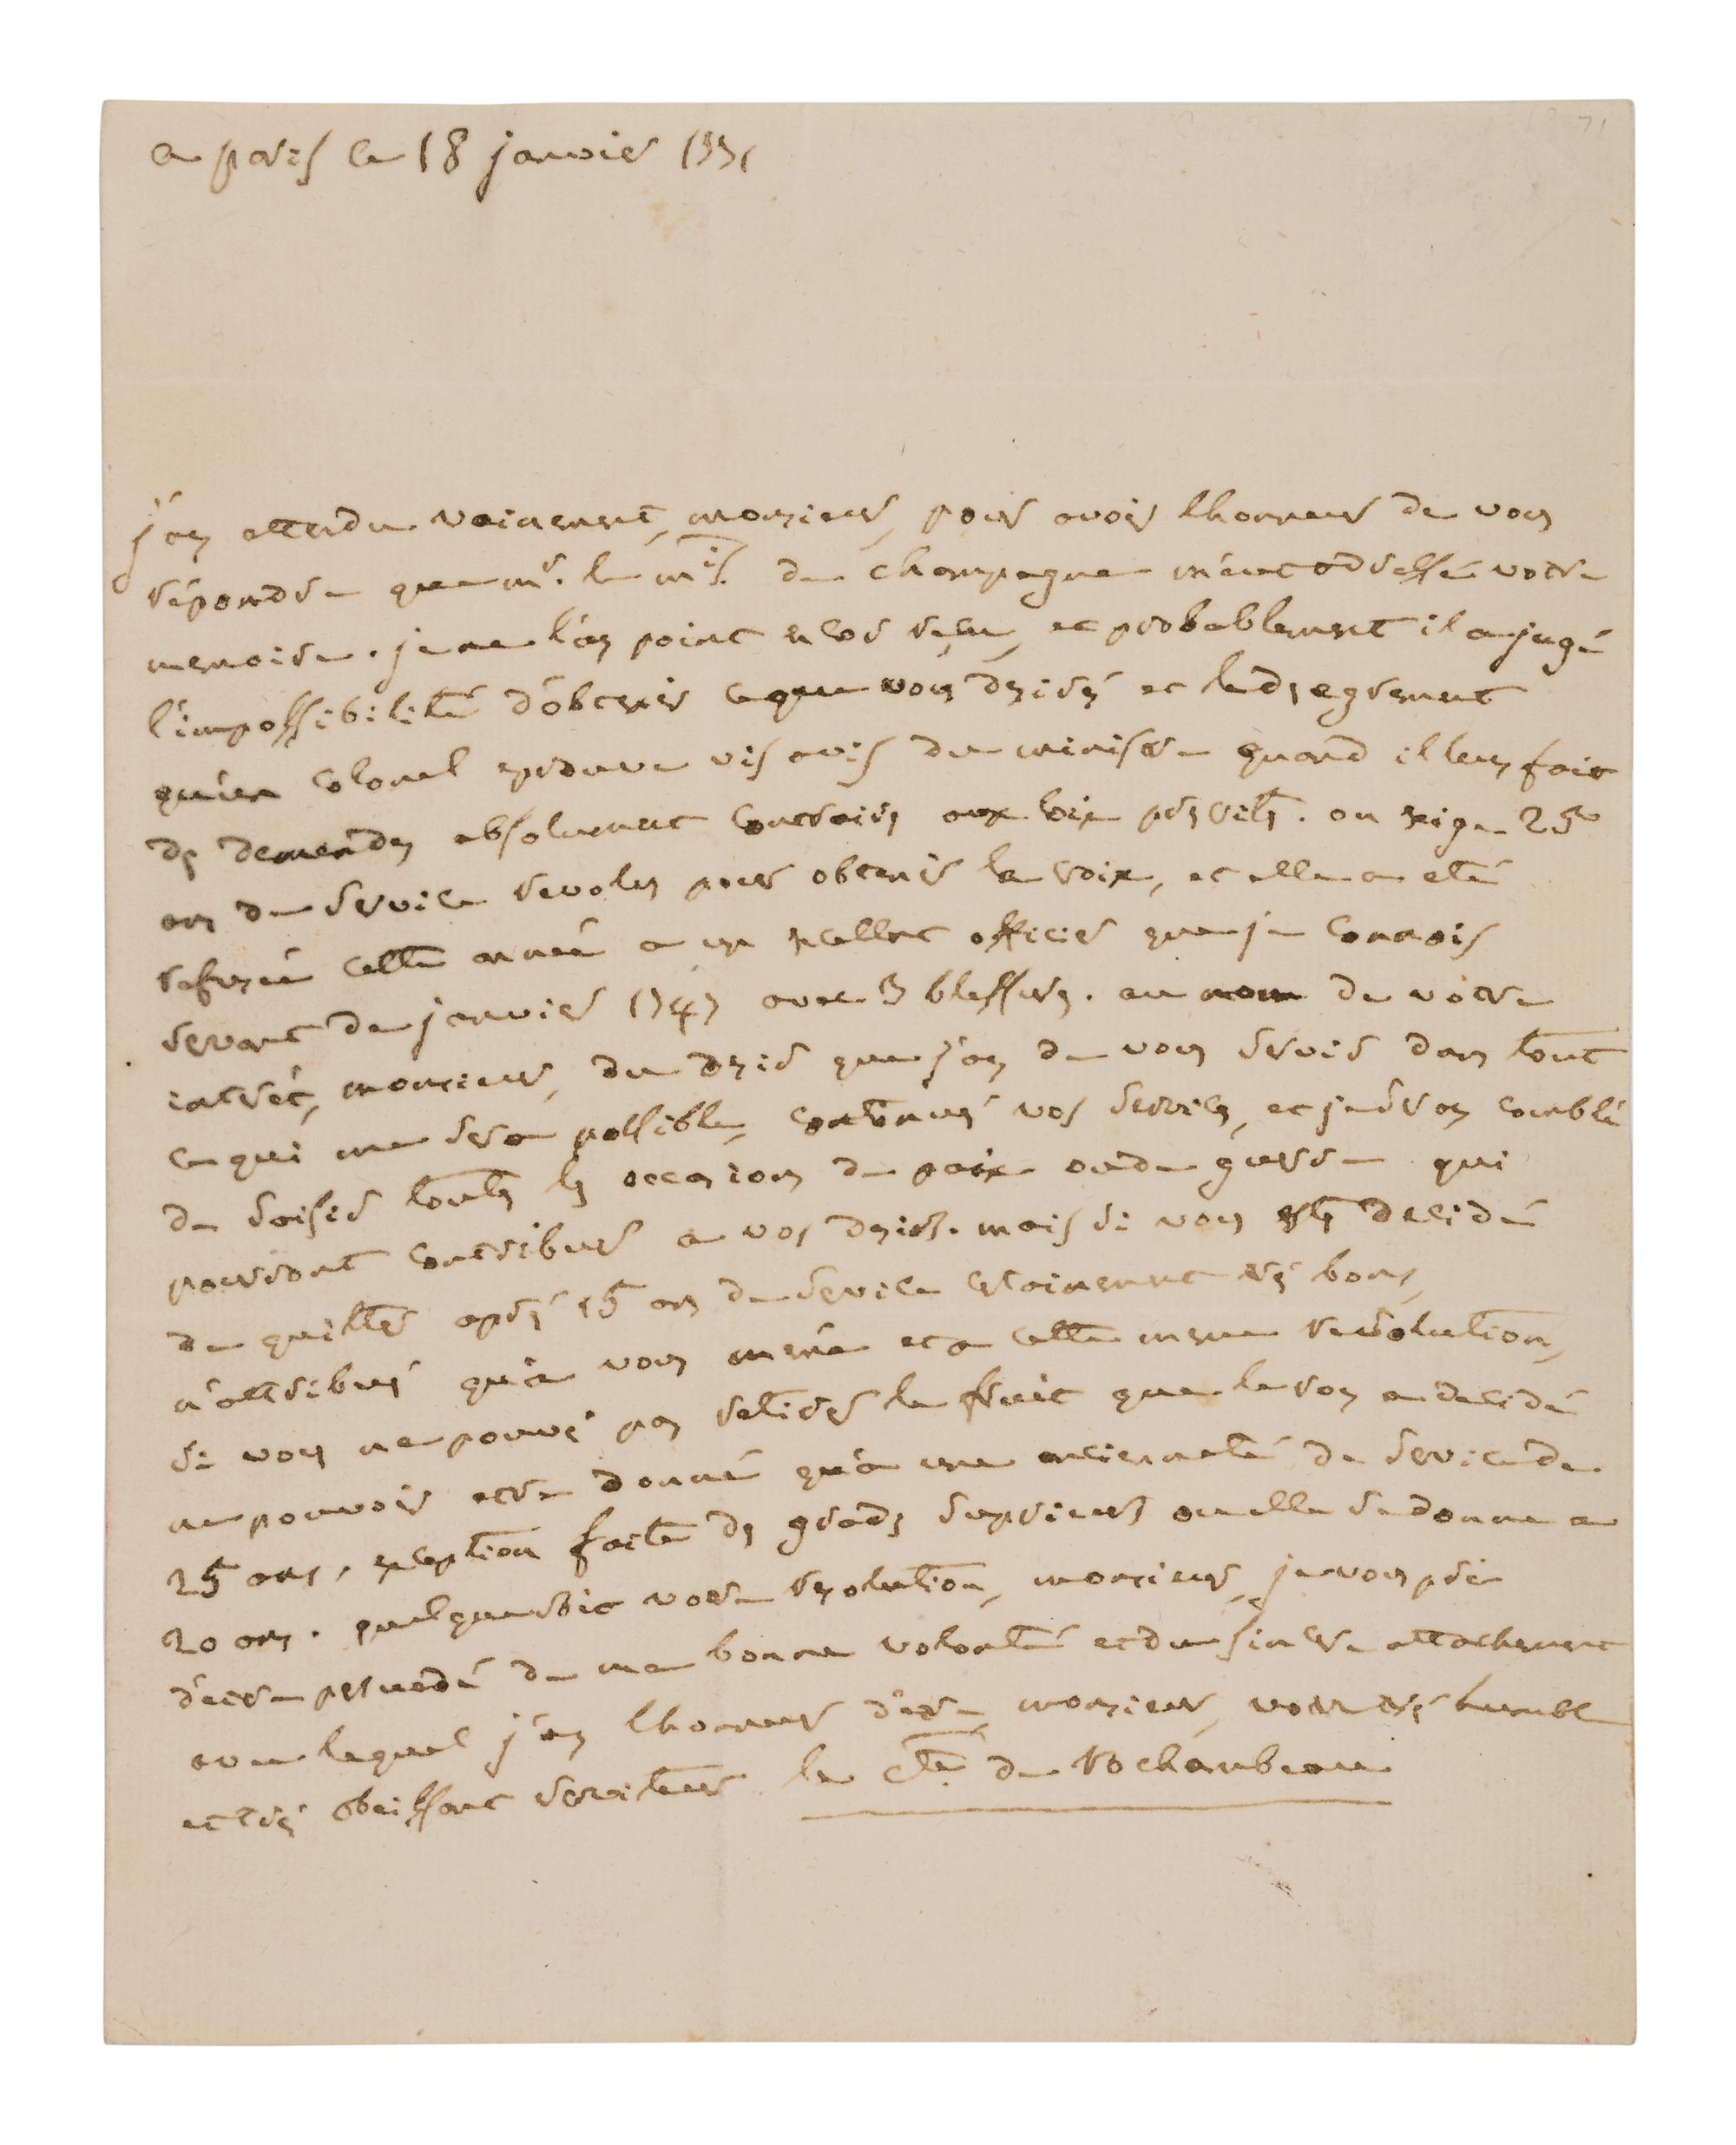 71
a paris ce 18 janvier 1771
j'ay attendu vainement, monsieur, pour avoir lhonneur de vous
répondre que mr. le mis. de champagne m'eut adressé votre
memoire. je ne l'ay point encor reçu, et probablement il a jugé
l'impossibilité d'obtenir ce que vous desirés et le desagrement
qu'un colonel eprouve vis avis du ministre quand il leur fait
des demandes absolument contraires aux loix prescrites. on exige 25
ans de service revolus pour obtenir la croix, et elle a eté
refusée cette année a un excellent officier que je connois
servant de janvier 1747 avec 3 blessures. au nom de votre
interet, monsieur, du desir que j'ay de vous servir dans tout
ce qui me sera possible, continués vos services, et je seray comblé
de saisir toutes les occasions de paix ou de guerre qui
pourront contribuer a vos desirs. mais si vous estes decidé
de quitter aprés 15 ans de service certainement trés bons,
n'attribués qu'a vous même et a cette meme resolution,
si vous ne pouvés pas retirer le fruit que le roy a decidé
ne pouvoir etre donné qu'a une ancienneté de service de
25 ans, exception faite des grades superieurs ou elle se donne a
20 ans. quelque soit votre resolution, monsieur, je vous prie
d'etre persuadé de ma bonne volonté et du sincere attachement
avec lequel j'ay lhonneur d'etre, monsieur, votre trés humble
et trés obeissant serviteur le cte. de Rochambeau